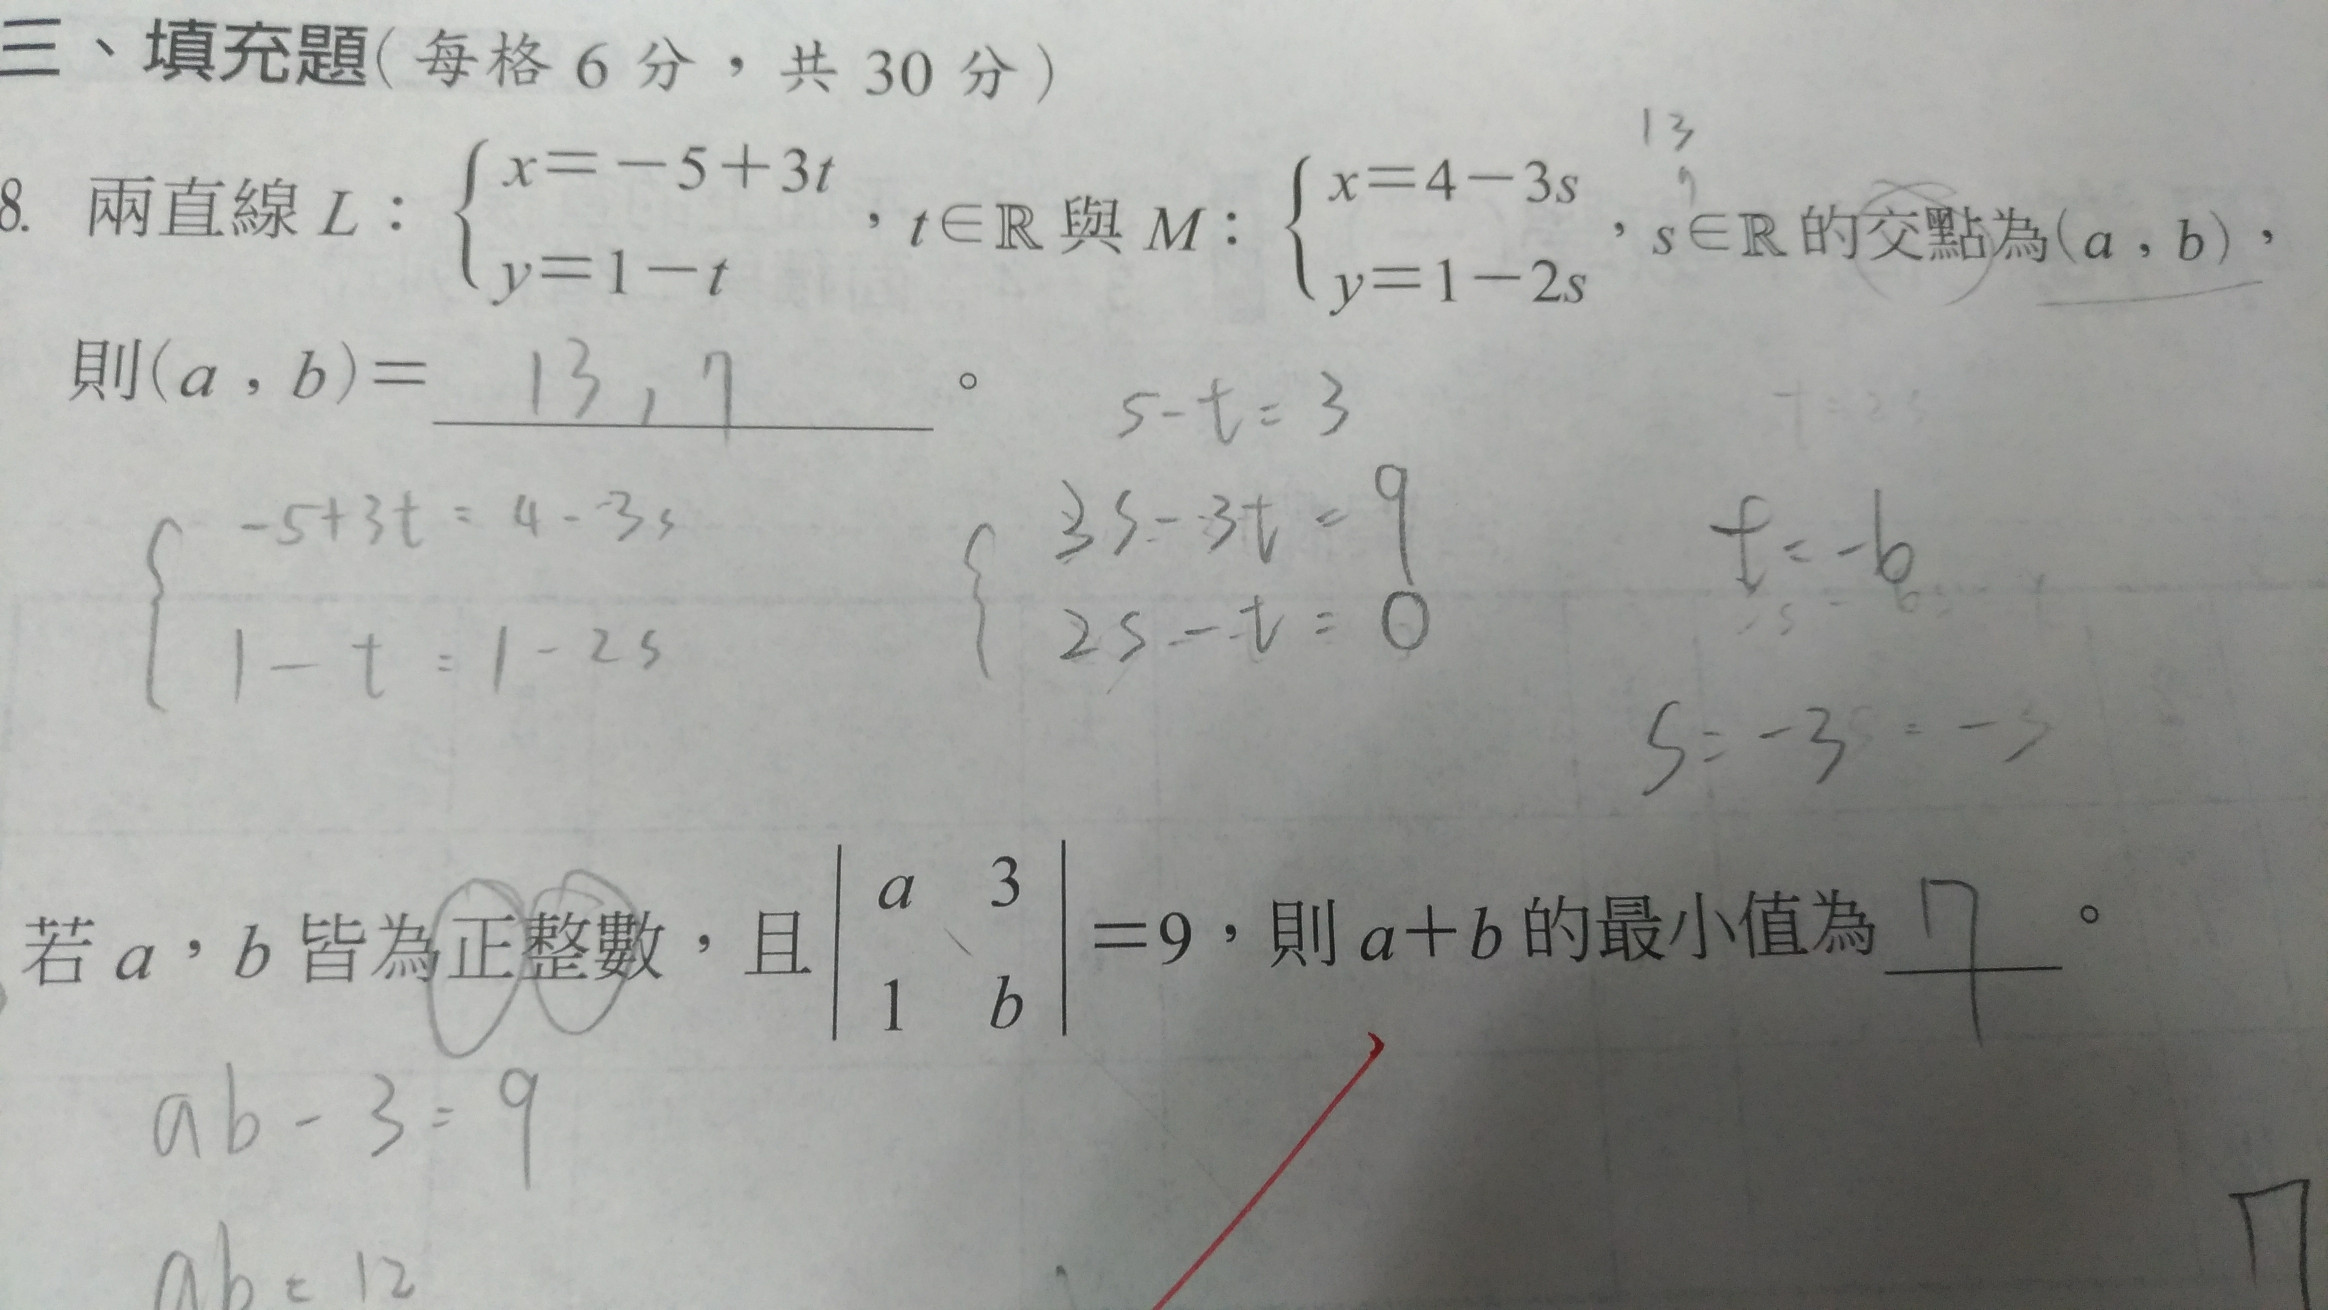 三、填充題(每格 6 分，共 30 分)
13
8. 兩直線 L：{x=-5+3t, y=1-t，t∈ℝ 與 M：{x=4-3s, y=1-2s，s∈ℝ 的交點為(a，b)，
則(a，b)= 13, 7 。
s-t=3
{-5+3t=4-3s
1-t=1-2s
{3s-3t=9
2s-t=0
t=-6
s=-3
若 a，b 皆為正整數，且 |a 3; 1 b| =9，則 a+b 的最小值為 7 。
ab-3=9
ab=12
7